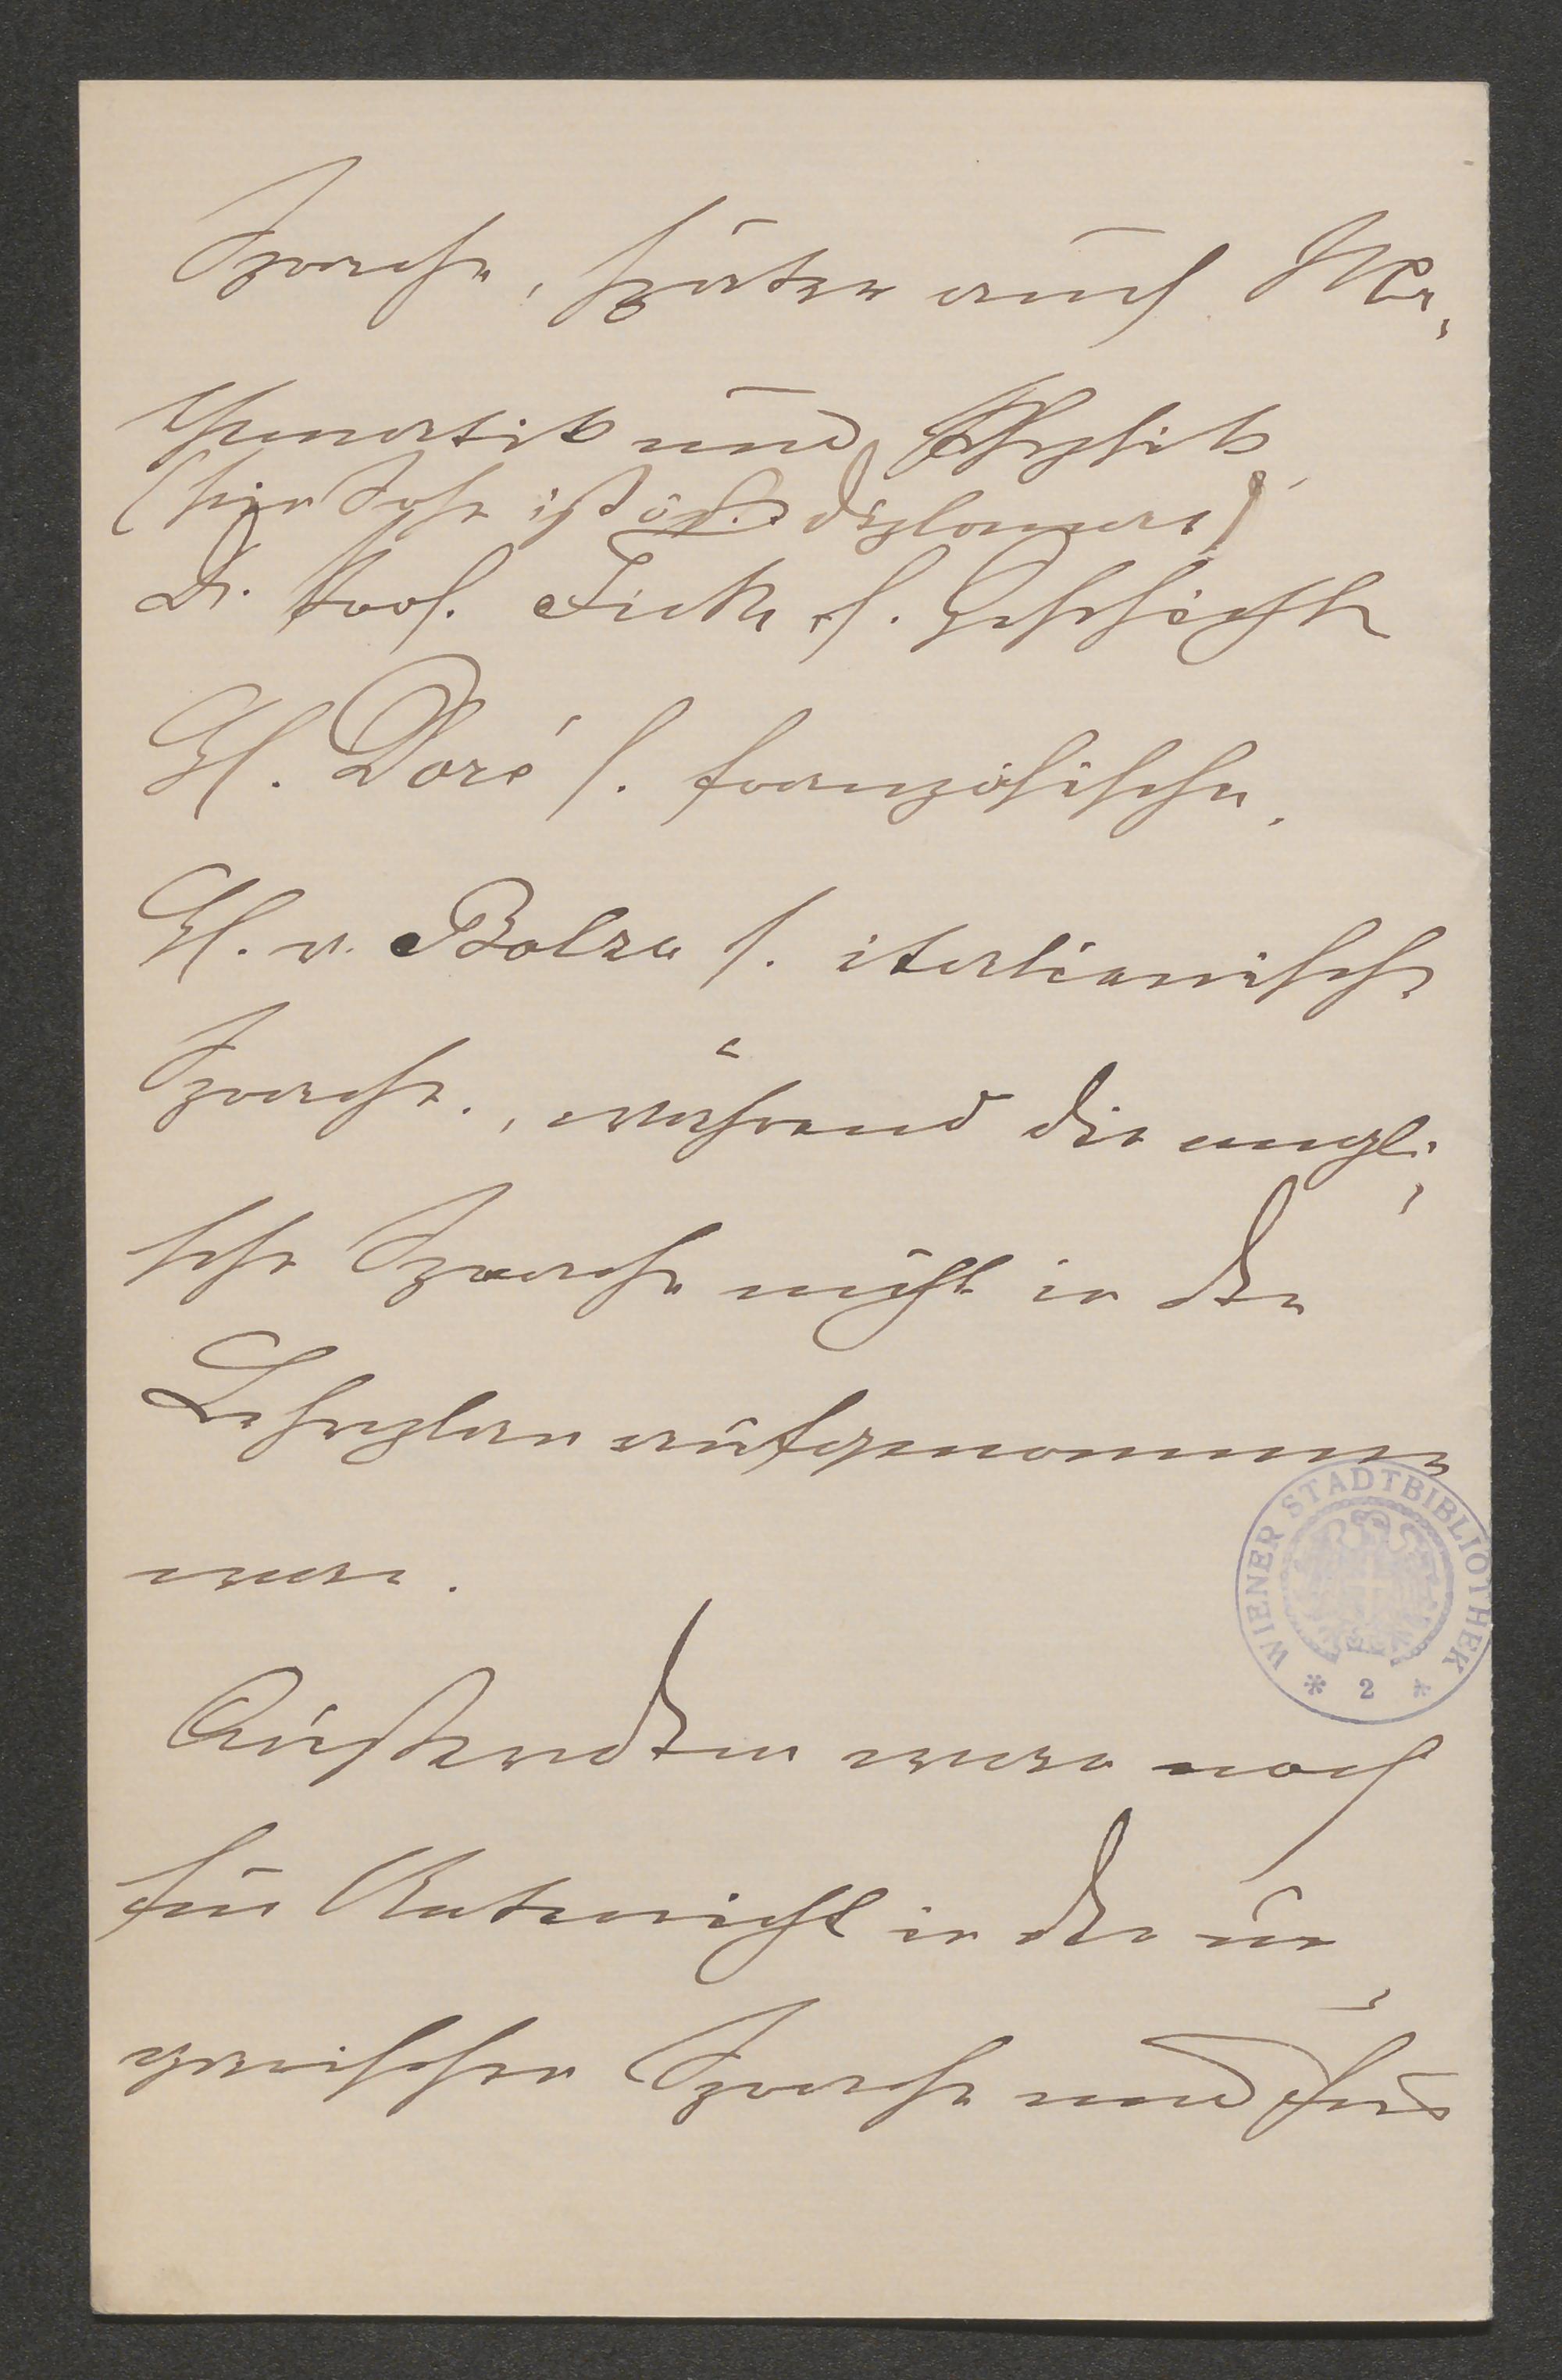 Sprache, später auch Ma,
thematik und Physik
(sein Sohn ist öst. Diplomat)
Dr. Prof. Ficker f. Geschichte
H. Doré f. französische,
H. v. Bolza f. italienische
Sprache., während die engli,
sche Sprache nicht in den
Lehrplan aufgenommen
war.
Außerdem war noch
für Unterricht in der un,
garischen Sprache und für
WIENER STADTBIBLIOTHEK
* 2 *